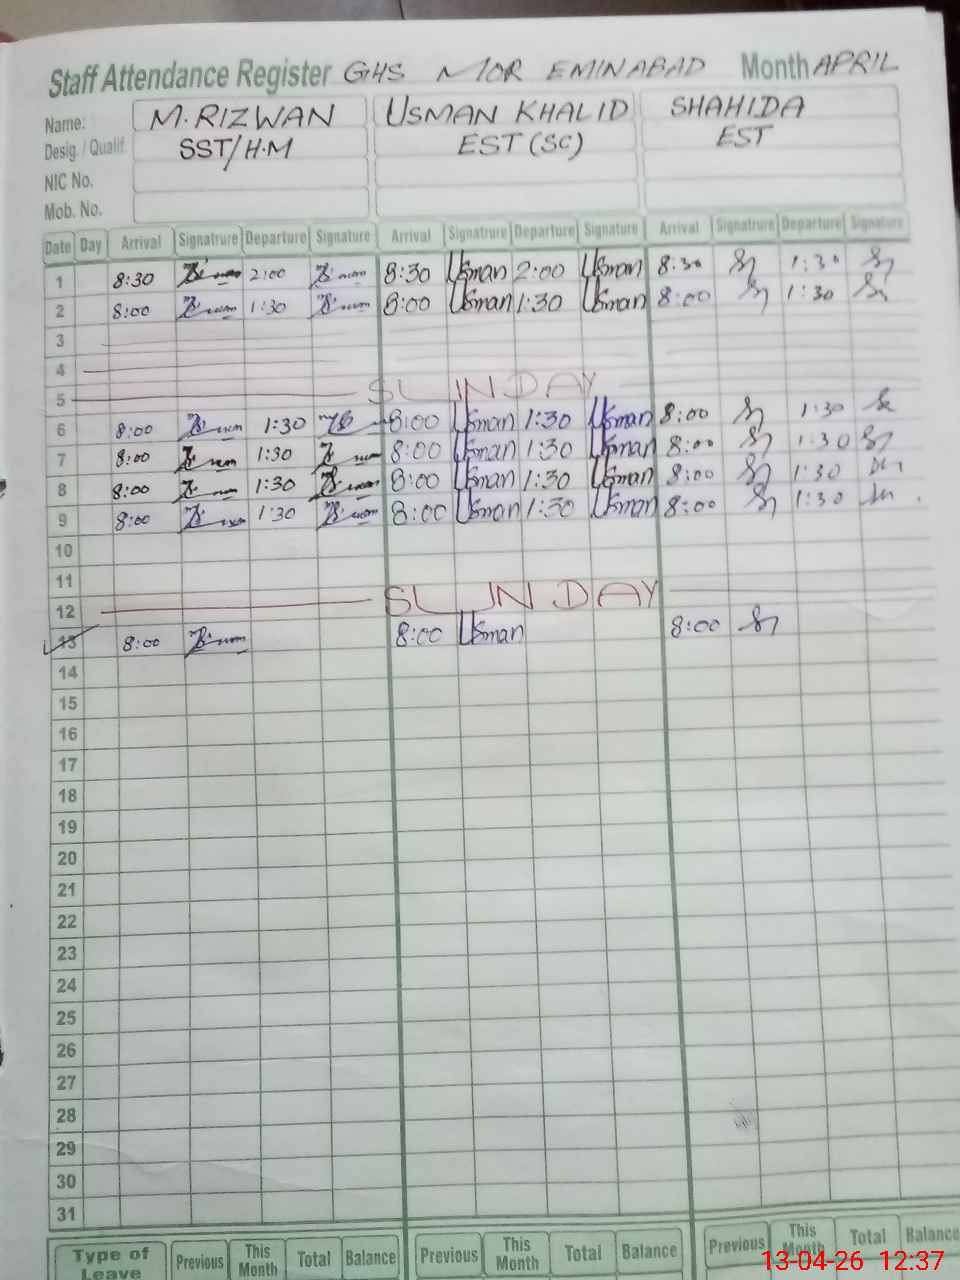 Staff Attendance Register GHS MOR EMINABAD Month APRIL
Name: M.RIZWAN USMAN KHALID SHAHIDA
Desig. / Qualif. SST/H.M EST (SC) EST
NIC No.
Mob. No.
Date Day Arrival Signatrure Departure Signature Arrival Signatrure Departure Signature Arrival Signatrure Departure Signature
1 8:30 2:00 8:30 Usman 2:00 Usman 8:30 1:30
2 8:00 1:30 8:00 Usman 1:30 Usman 8:00 1:30
3
4
5 SUNDAY
6 8:00 1:30 8:00 Usman 1:30 Usman 8:00 1:30
7 8:00 1:30 8:00 Usman 1:30 Usman 8:00 1:30
8 8:00 1:30 8:00 Usman 1:30 Usman 8:00 1:30
9 8:00 1:30 8:00 Usman 1:30 Usman 8:00 1:30
10
11
12 SUNDAY
13 8:00 8:00 Usman 8:00
14
15
16
17
18
19
20
21
22
23
24
25
26
27
28
29
30
31
Type of Leave Previous This Month Total Balance Previous This Month Total Balance Previous This Month Total Balance
13-04-26 12:37